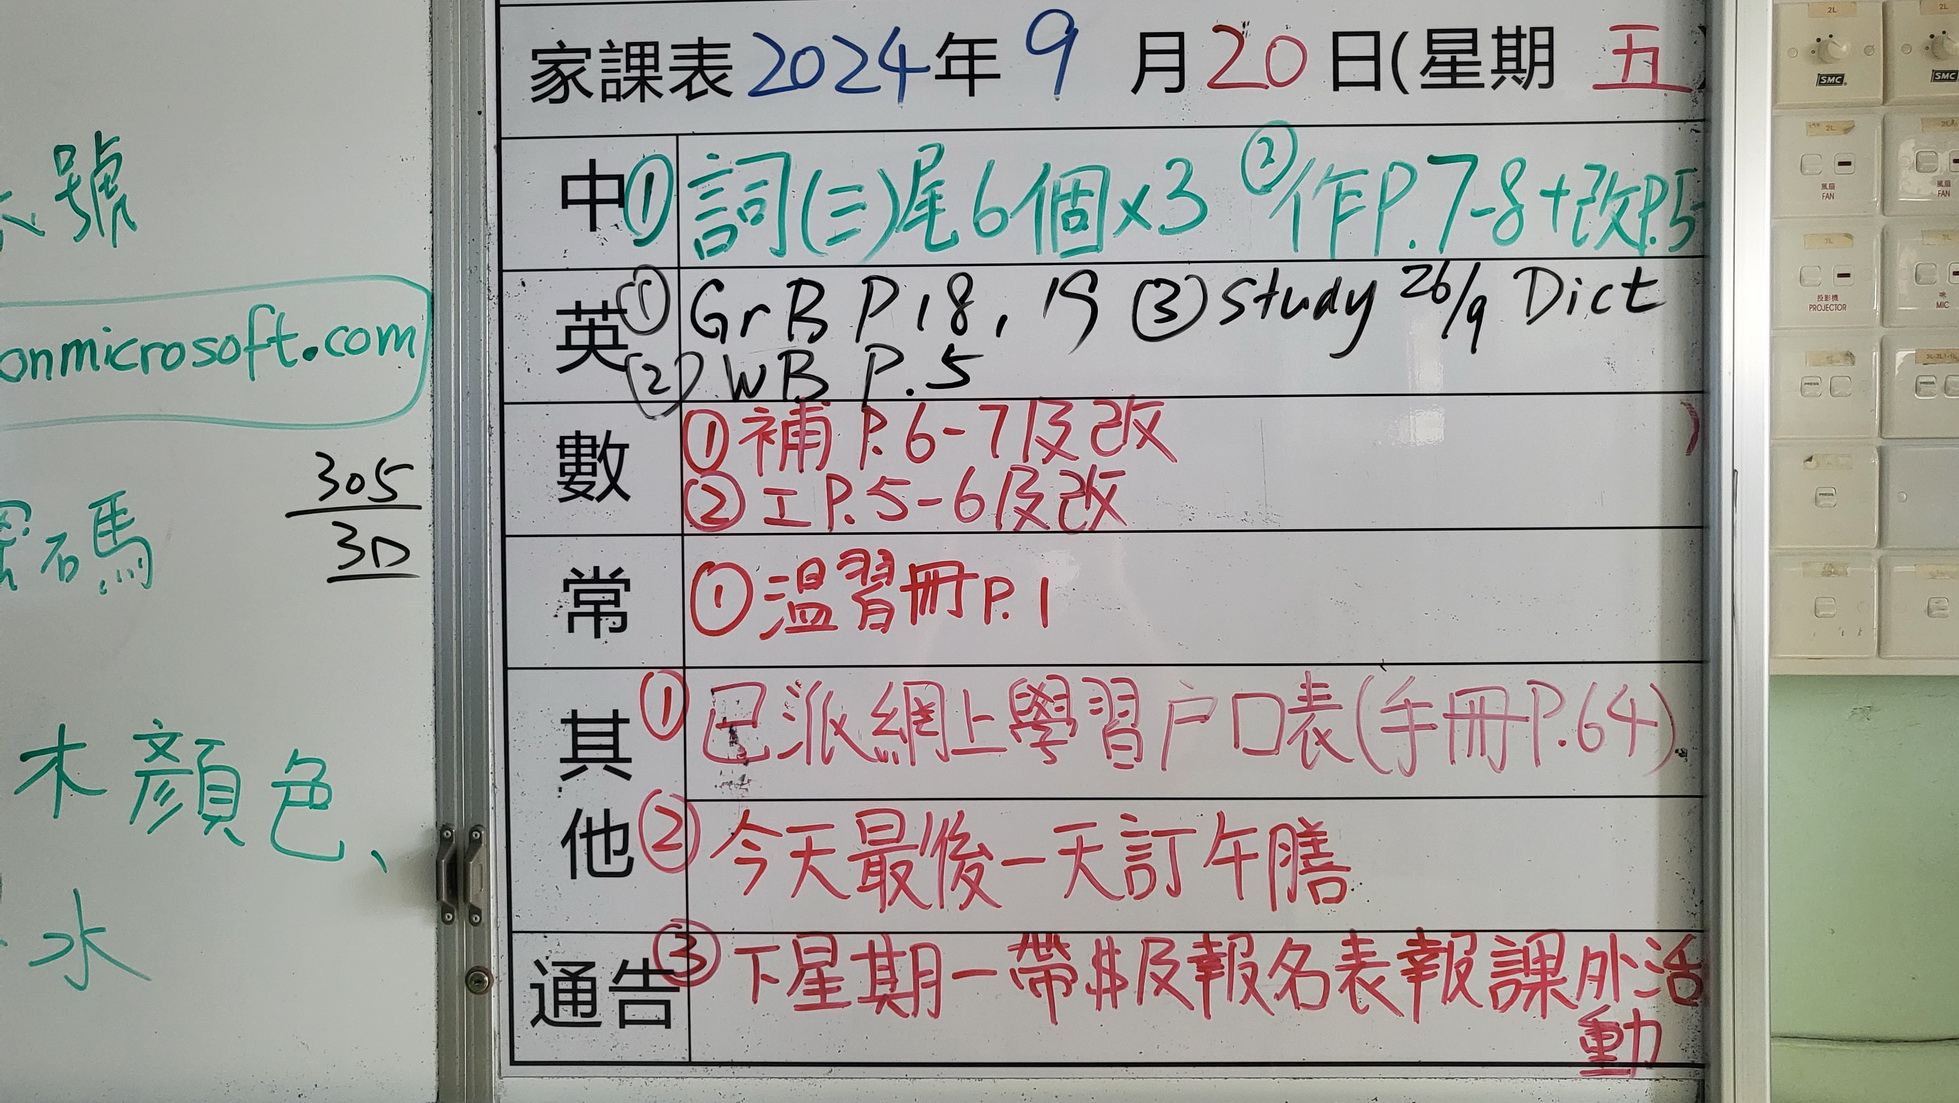 號
onmicrosoft.com
密碼
305
3D
木顏色、
水
家課表2024年9月20日(星期五)
中 ① 詞(三)尾6個x3 ②作P.7-8+改P.5
英 ① GrB P.18, 19 ③ Study 26/9 Dict
② WB P.5
數 ① 補P.6-7及改
② 工P.5-6及改
常 ① 溫習冊P.1
其他 ① 已派網上學習户口表(手冊P.64)
② 今天最後一天訂午膳
通告 ③ 下星期一帶$及報名表報課外活
動
SMC
SMC
風扇
FAN
FAN
投影機
PROJECTOR
MIC